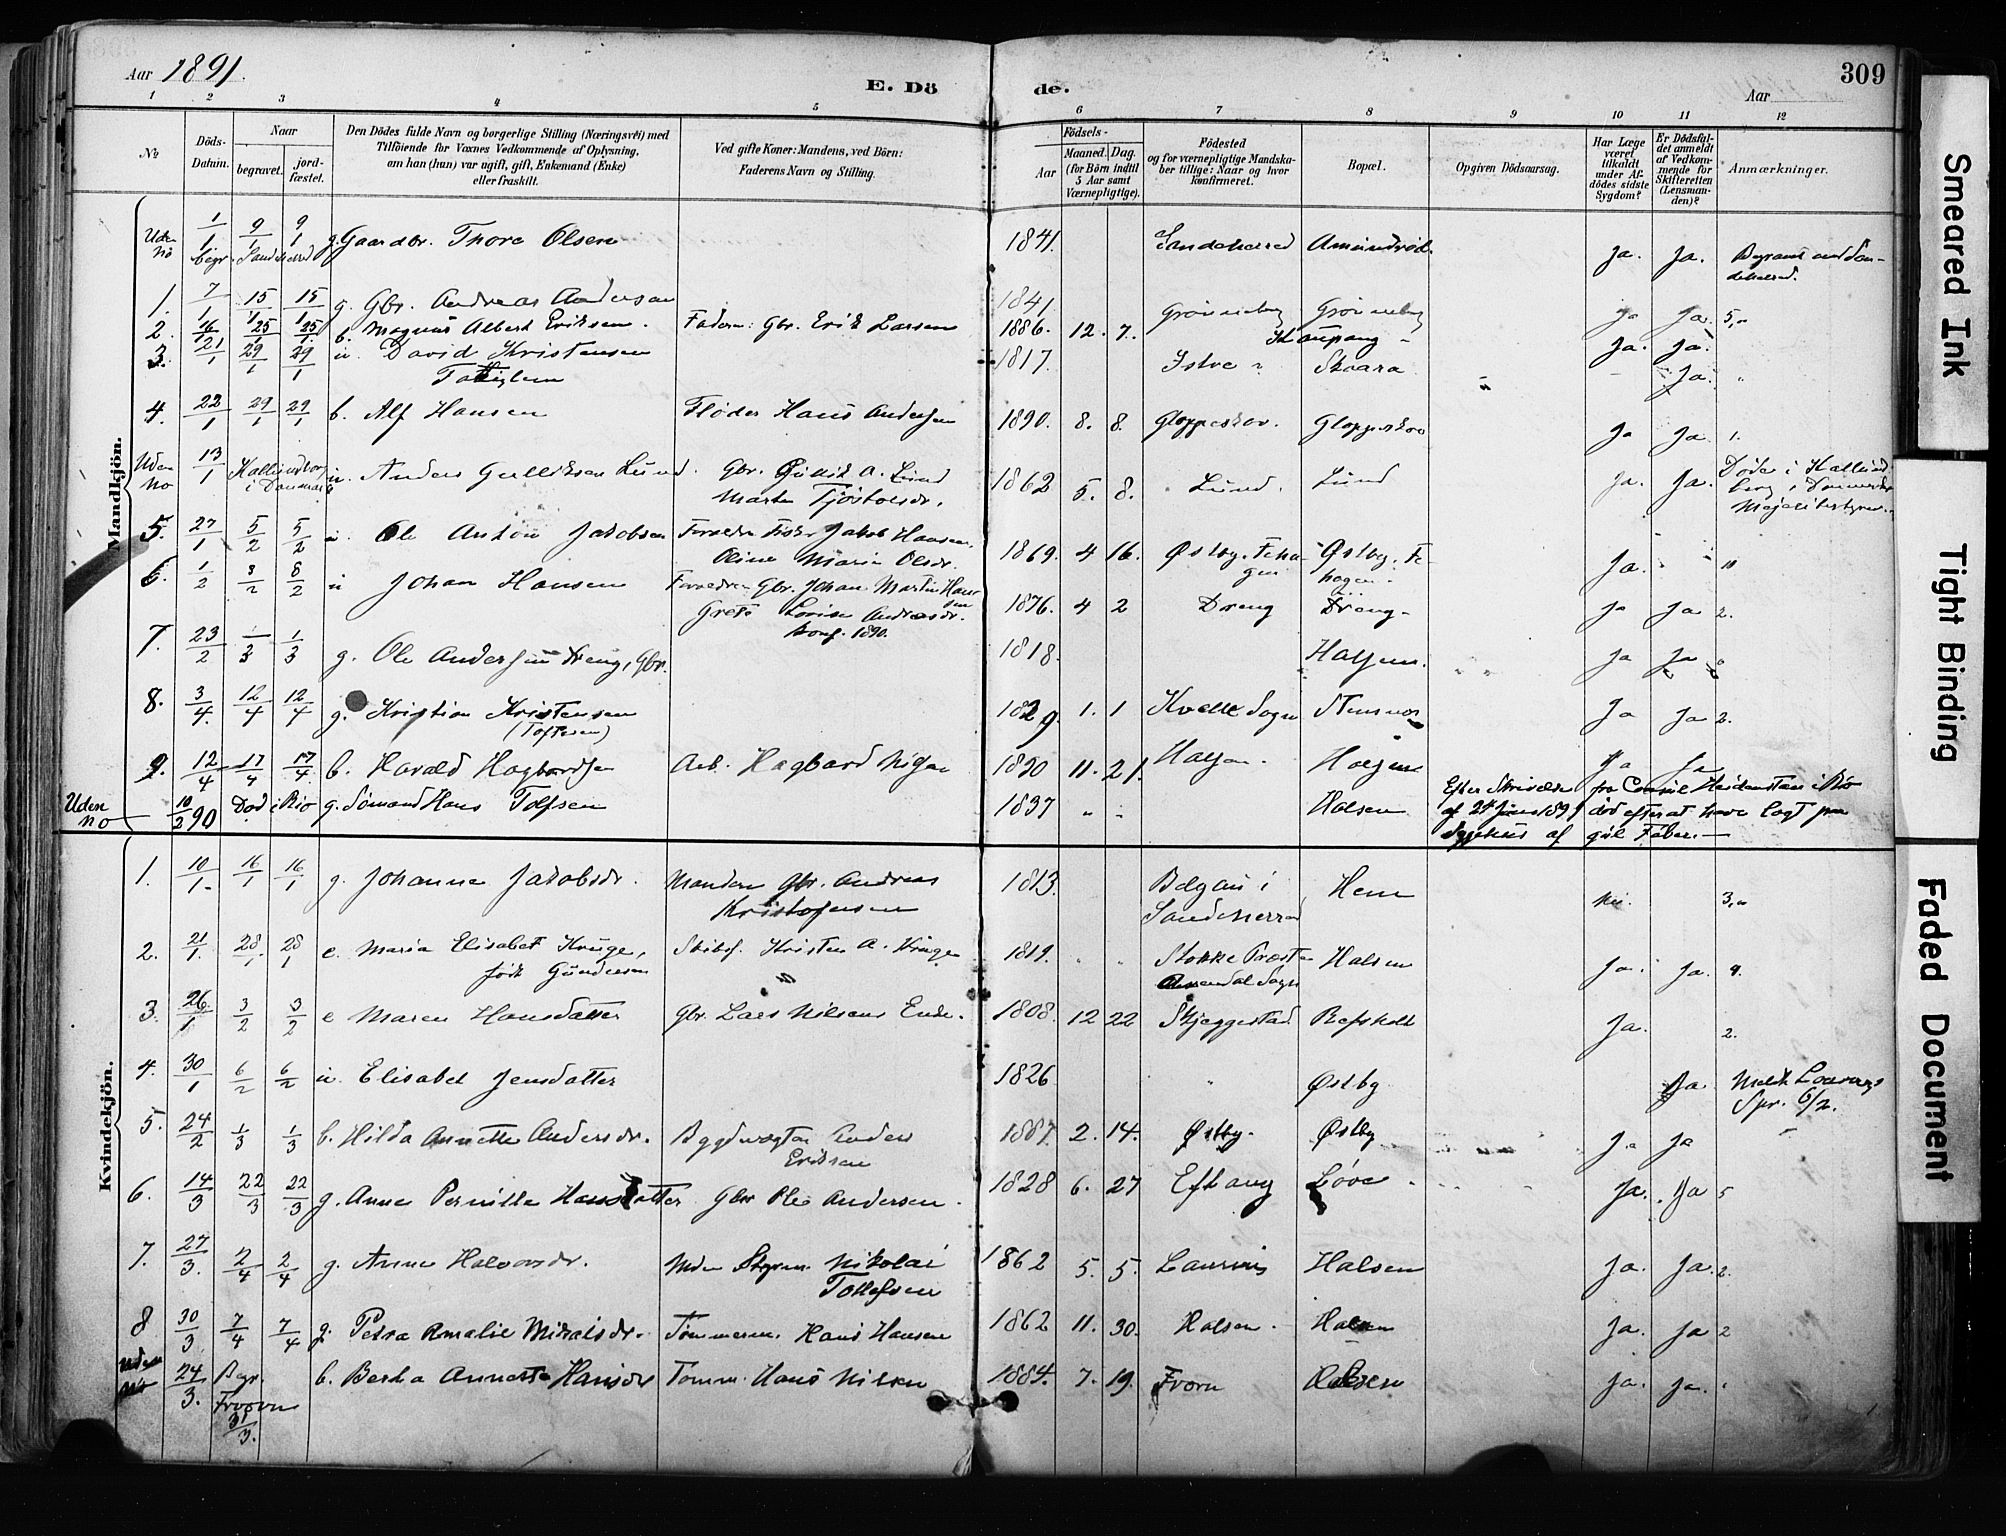 Aar 1891.
E. Döde.
Aar
309
1 2 3 4 5 6 7 8 9 10 11 12
No
Döds-Datum.
Naar
begravet.
jord-fæstet.
Den Dödes fulde Navn og borgerlige Stilling (Næringsvei) med
Tilföiende for Voxnes Vedkommende af Oplysning,
om han (hun) var ugift, gift, Enkemand (Enke)
eller fraskilt.
Ved gifte Koner: Mandens, ved Börn:
Faderens Navn og Stilling.
Födsels-
Aar
Maaned. Dag.
(for Börn indtil
5 Aar samt
Værnepligtige).
Födested
og for værnepligtige Mandska-
ber tillige: Naar og hvor
konfirmeret.
Bopæl.
Opgiven Dödsaarsag.
Har Læge
været
tilkaldt
under Af-
dödes sidste
Sygdom?
Er Dödsfal-
det anmeldt
af Vedkom-
mende for
Skifteretten
(Lensman-
den)?
Anmærkninger.
Mandkjön.
Uden No 1/1 9/1 9/1 g. Gaardbr. Thore Olsen 1841. Sandeherred Amundrød. Ja. Ja.
begr. Sandeherred
1. 7/1 15/1 15/1 g. Gbr. Andreas Andersen 1841. Grönneberg Grönneberg Ja Ja. 5,"
2. 16/1 25/1 25/1 b. Magnus Albert Eriksen. Faderen: Gbr. Erik Larsen 1886. 12. 7. Kaupang - Ja. Ja.
3. 21/1 29/1 29/1 u David Kristensen 1817. Istre " Skaara Ja. "
4. 22/1 29/1 29/1 b. Alf Hansen Fløder Hans Andersen 1890. 8. 8. Gloppeskov. Gloppeskov Ja Ja. 1.
Uden No 13/1 Kallundborg i Danmark u. Anders Gulliksen Lund. Gbr. Gullik A. Lund 1862 5. 8. Lund. Lund Ja. Ja. Døde i Kallund-
Marte Tjöstolsdr.
5. 27/1 5/2 5/2 u. Ole Anton Jakobsen Forældre Fisker Jakob Hansen, 1869. 4 16. Østby. Østby, Ja. 10
Oline Maria Olsdr.
6. 1/2 8/2 8/2 u Johan Hansen Forældre Gbr. Johan Martin Hansen 1876. 4 2 Dreng Dreng- Ja Ja 2.
Grete Lovise Andreasdr.
konf. 1890.
7. 23/2 1/3 1/3 g. Ole Andersen Dreng, Gbr. 1818. Halsen. Ja Ja
8. 3/4. 12/4 12/4 g. Kristian Kristensen 1829. 1. 1 Kvelle Sogn Ja Ja 2.
(Toftesen)
9. 12/4 17/4 17/4 b. Harald Hagbardsen Arb. Hagbard 1890 11. 21. Halsen. Halsen Ja Ja
Uden No 10/2 90 Död i Rio g. Sömand Hans Tolfsen 1837 " " Halsen Efter Skrivelse fra Consul Heidenstam i Rio
af 24 Juni 1891 död efter at have lagt paa
Sygehus af gul Feber. —
Kvindekjön.
1. 10/1. 16/1 16/1 g. Johanne Jakobsdr. Manden Gbr. Andreas 1813. Bolgan i Hem Nei. 3,"
Kristofersen Sandeherred
2. 21/1. 28/1 28/1 e. Maria Elisabet Kruge, Skibsf. Kristen A. Kruge 1819. " " Stokke Præst. Halsen Ja. Ja. 4.
født Gundersen
3. 26/1 3/2 3/2 e Maren Hansdatter Gbr. Lars Nilsens Enke. 1808. 12 22 Skjeggestad Refsholt Ja. 2.
4. 30/1 6/2 6/2 u. Elisabet Jensdatter 1826 " Østby Ja
Spr. 6/2.
5. 24/2 1/3 1/3 b. Hilda Annette Andersdr. Anders 1887. 2. 14. Østby. Østby Ja Ja "
Eriksen
6. 14/3 22/3 22/3 g. Anne Pernille Hansdatter Gbr Ole Andersen. 1828 6. 27 Eftang Løve Ja. Ja 5
7. 27/3. 2/4 2/4 g. Anne Halvorsdr. Styrm. Nikolai 1862 5. 5. Laurvig Halsen Ja. Ja. 2.
Tollefsen
8 30/3 7/4 7/4 g. Petra Amalie Mikalsdr. Tømmerm. Hans Hansen 1862 11. 30. Halsen. Halsen Ja. Ja 2
Uden No 24/3. Begr. b. Berta Annette Hansdr Tømm. Hans Nilsen 1884. 7. 19. Halsen Ja. Ja.
31/3.
Smeared Ink
Tight Binding
Faded Document